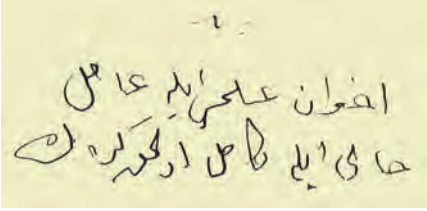 - ١ -
اخوان علمى ايله عامل
حالى ايله كامل اولمق كرك